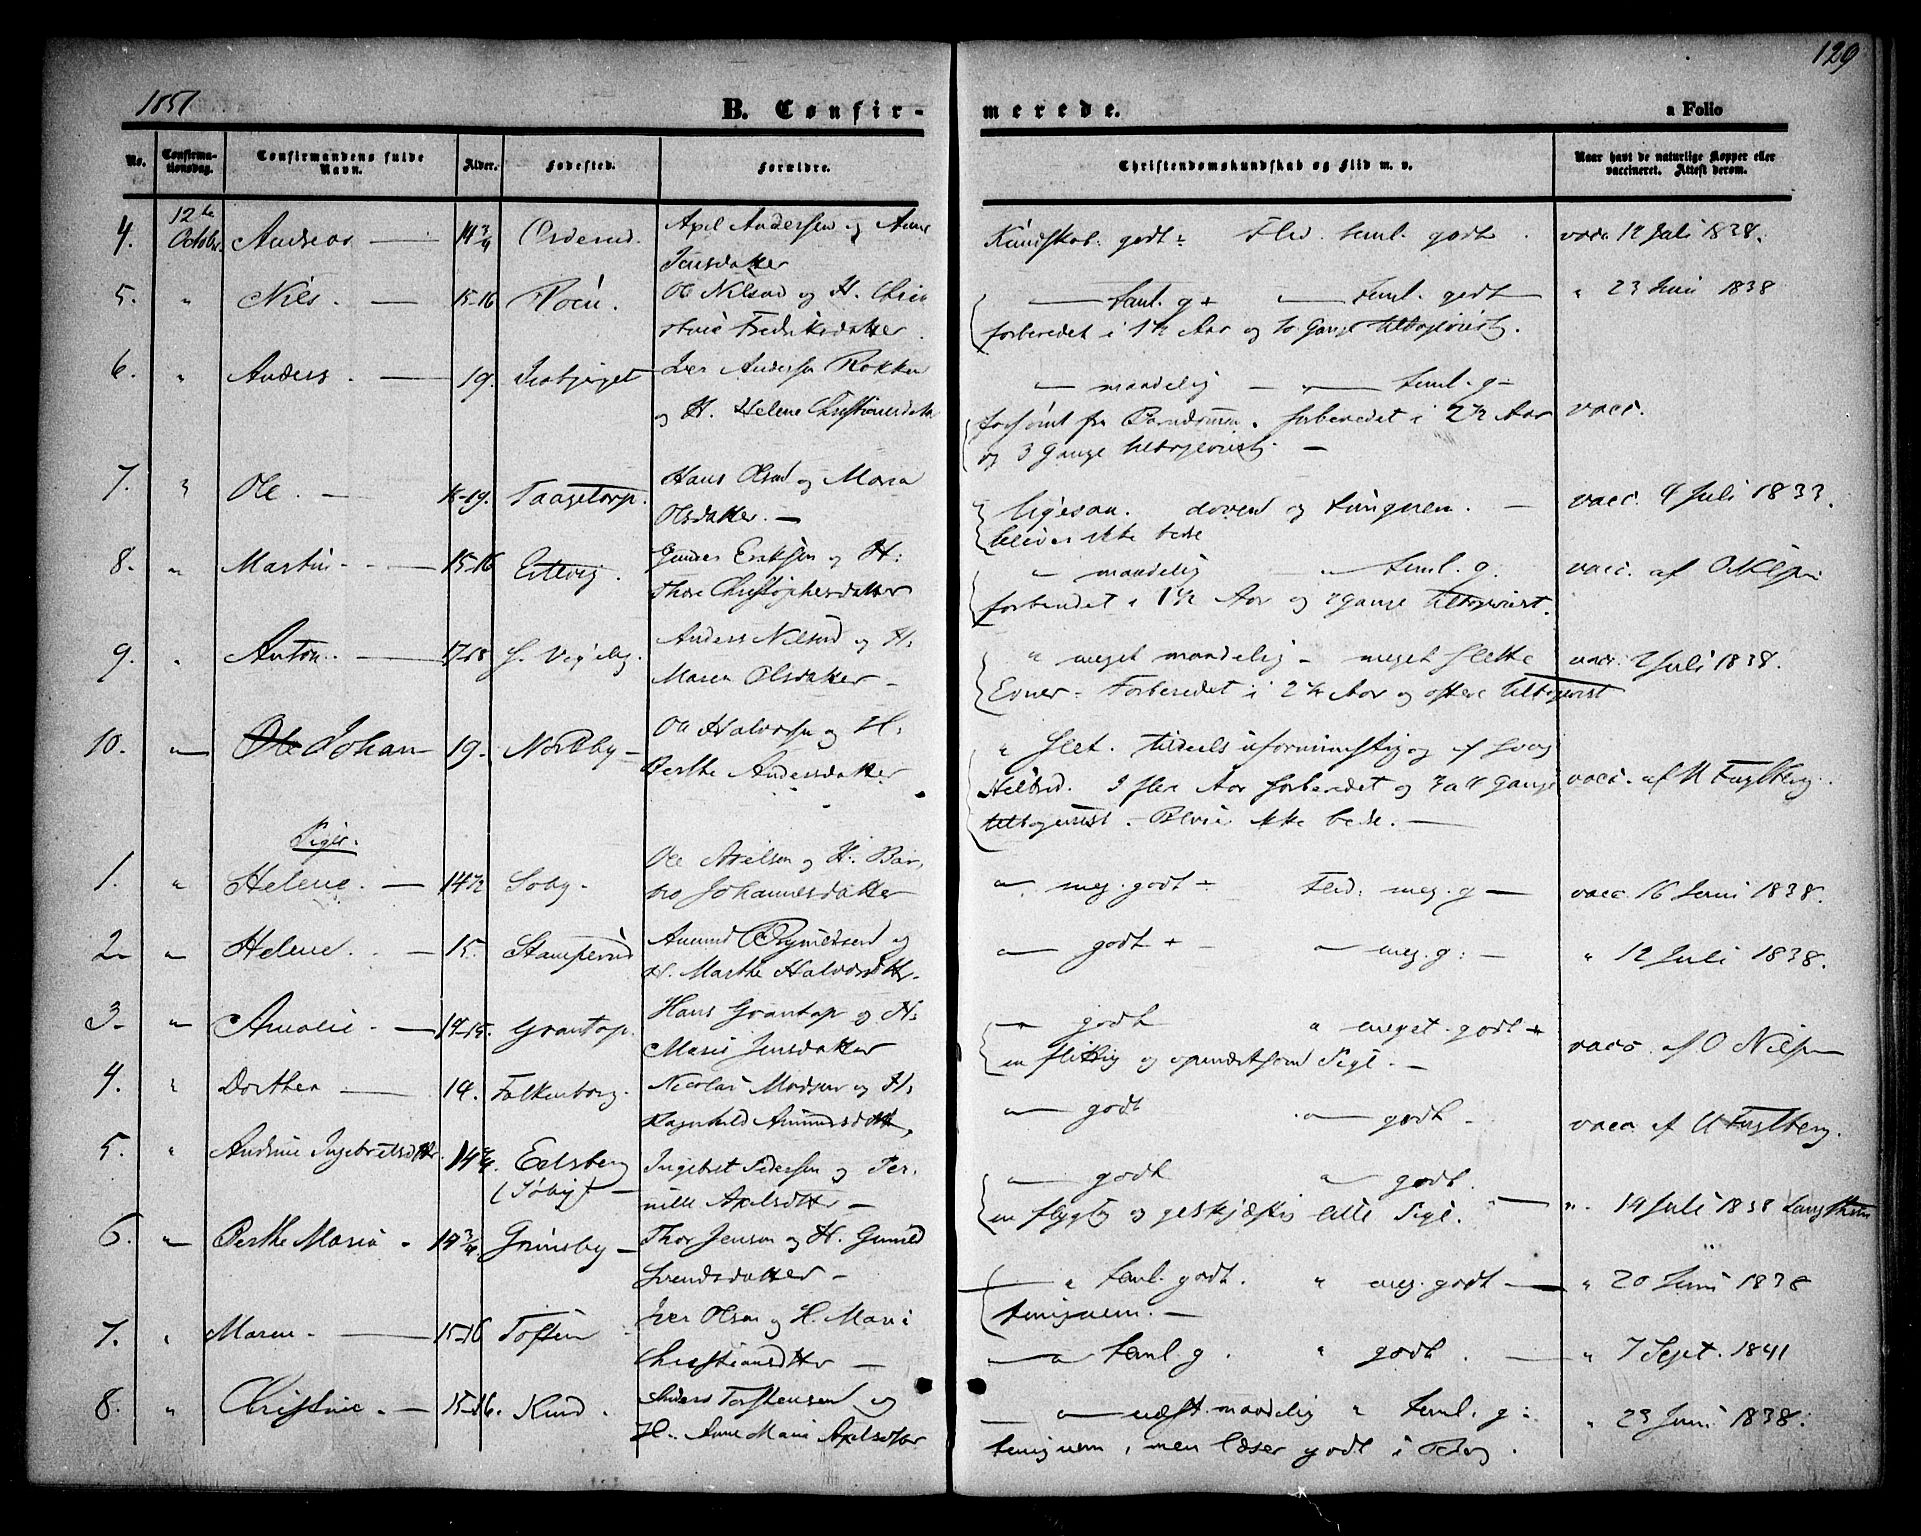 1851
129
B. Confirmerede.
a Folio
No. Confirmationsdag. Confirmandens fulde Navn. Alder. Fødested. Forældre. Christendomskundskab og Flid m. v. Naar havt de naturlige Kopper eller vaccineret. Attest derom.
4. 12te Octobr. Andreas 14 3/4 Axel Andersen og Anne
Jensdatter
Kundskab. godt Flid. teml. godt vacc. 12 Juli 1838.
5. " Nils. 15-16 Ole Nilsen og H. Chri
stine Fredriksdatter.
teml. g + teml. godt " 23 Juni 1838
forberedet i 1 1/2 Aar og to Gange tilbagevist.
6. " Anders. 19. Iver Andersen Rokken
og H. Helene Christiansdatt
maadelig teml. g
forsømt fra Barndommen. forberedet i 2 1/2 Aar vacc.
og 3 Gange tilbagevist
7. " Ole. 18-19. Taagetorp. Hans Olsen og Maria
Olsdatter.
ligesaa. doven og tungnem. vacc. 4 Juli 1833.
bliver ikke bedre
8. " Martin 15-16 Gunder Eriksen og H:
Thore Christophersdatter
" maadelig teml. g. vacc. af O Nilsen
forberedet i 1 1/2 Aar og 2 Gange tilbagevist.
9. " Anton. 17-18 Anders Nilsen og H.
Maren Olsdatter
" meget maadelig – meget slette vacc. 2 Juli 1838.
Evner – Forberedet i 2 1/2 Aar og oftere tilbagevist
10. " Ole Johan 19. Nordby Ole Halvorsen og H.
Berthe Andersdatter
" slet. tildeels ufornuftig og af svag
Helbred. I flere Aar forberedet og 3 a 4 Gange vacc. af U Fuglberg.
tilbagevist. Bliver ikke bedre.
Piger.
1. " Helene. 14 1/2 Soby. Ole Axelsen og H. Bar
bro Johannesdatter
meg. godt ÷ Flid: meg. g vacc. 16 Juni 1838.
2 " Helene. 15. Stamperud Amund Brynildsen og
H. Marthe Halvorsdttr.
godt + meg. g: " 12 Juli 1838.
3 " Amalie 14-15. Grantop. Hans Grantop og H.
Marie Jensdatter
godt " meget godt + vacc. af O Nilsen
en flittig og opmærksom Pige.
4. " Dorthea 14. Falkenborg. Nicolai Madsen og H.
Ragnhild Amundsdttr.
godt godt vacc. af U Fuglberg.
5. " Andrine Ingebretsdttr. 14 3/4 Edsberg Ingebret Pedersen og Per-
(Søby) nille Axelsdttr
godt " godt.
en flygtig og geskjæftig lille Pige. " 14 Juli 1838
6. " Berthe Maria 14 3/4 Grimsby Thor Jensen og H. Gunild
Svendsdatter
" teml. godt. " meg. godt " 20 Juni 1838
tungnem.
7. " Maren 15-16 Toften Iver Olsen og H. Mari
Christiansdttr
teml. g. " godt. " 7 Sept. 1841
8. " Christine 15-16. Anders Torstensen og
H. Anne Marie Axelsdttr
næst. maadelig " teml. g: " 23 Juni 1838.
tungnem, men læser godt i Bog.